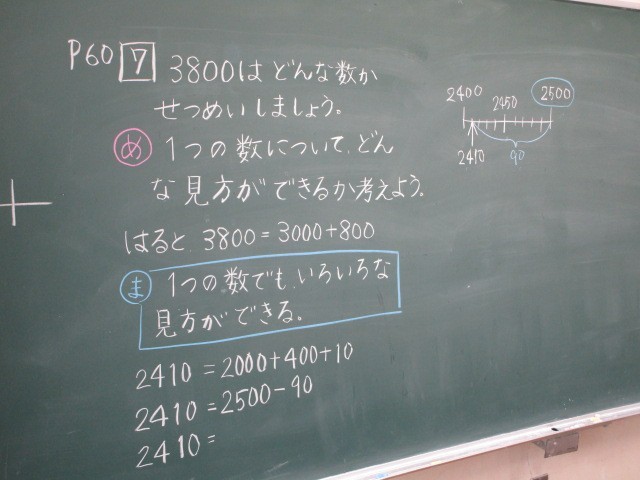 P60 7 3800は どんな数か
せつめいしましょう。
め 1つの数について、どん
な見方ができるか考えよう。
はると 3800=3000+800
ま 1つの数でも、いろいろな
見方ができる。
2410=2000+400+10
2410=2500-90
2410=
2400 2450 2500
2410 90